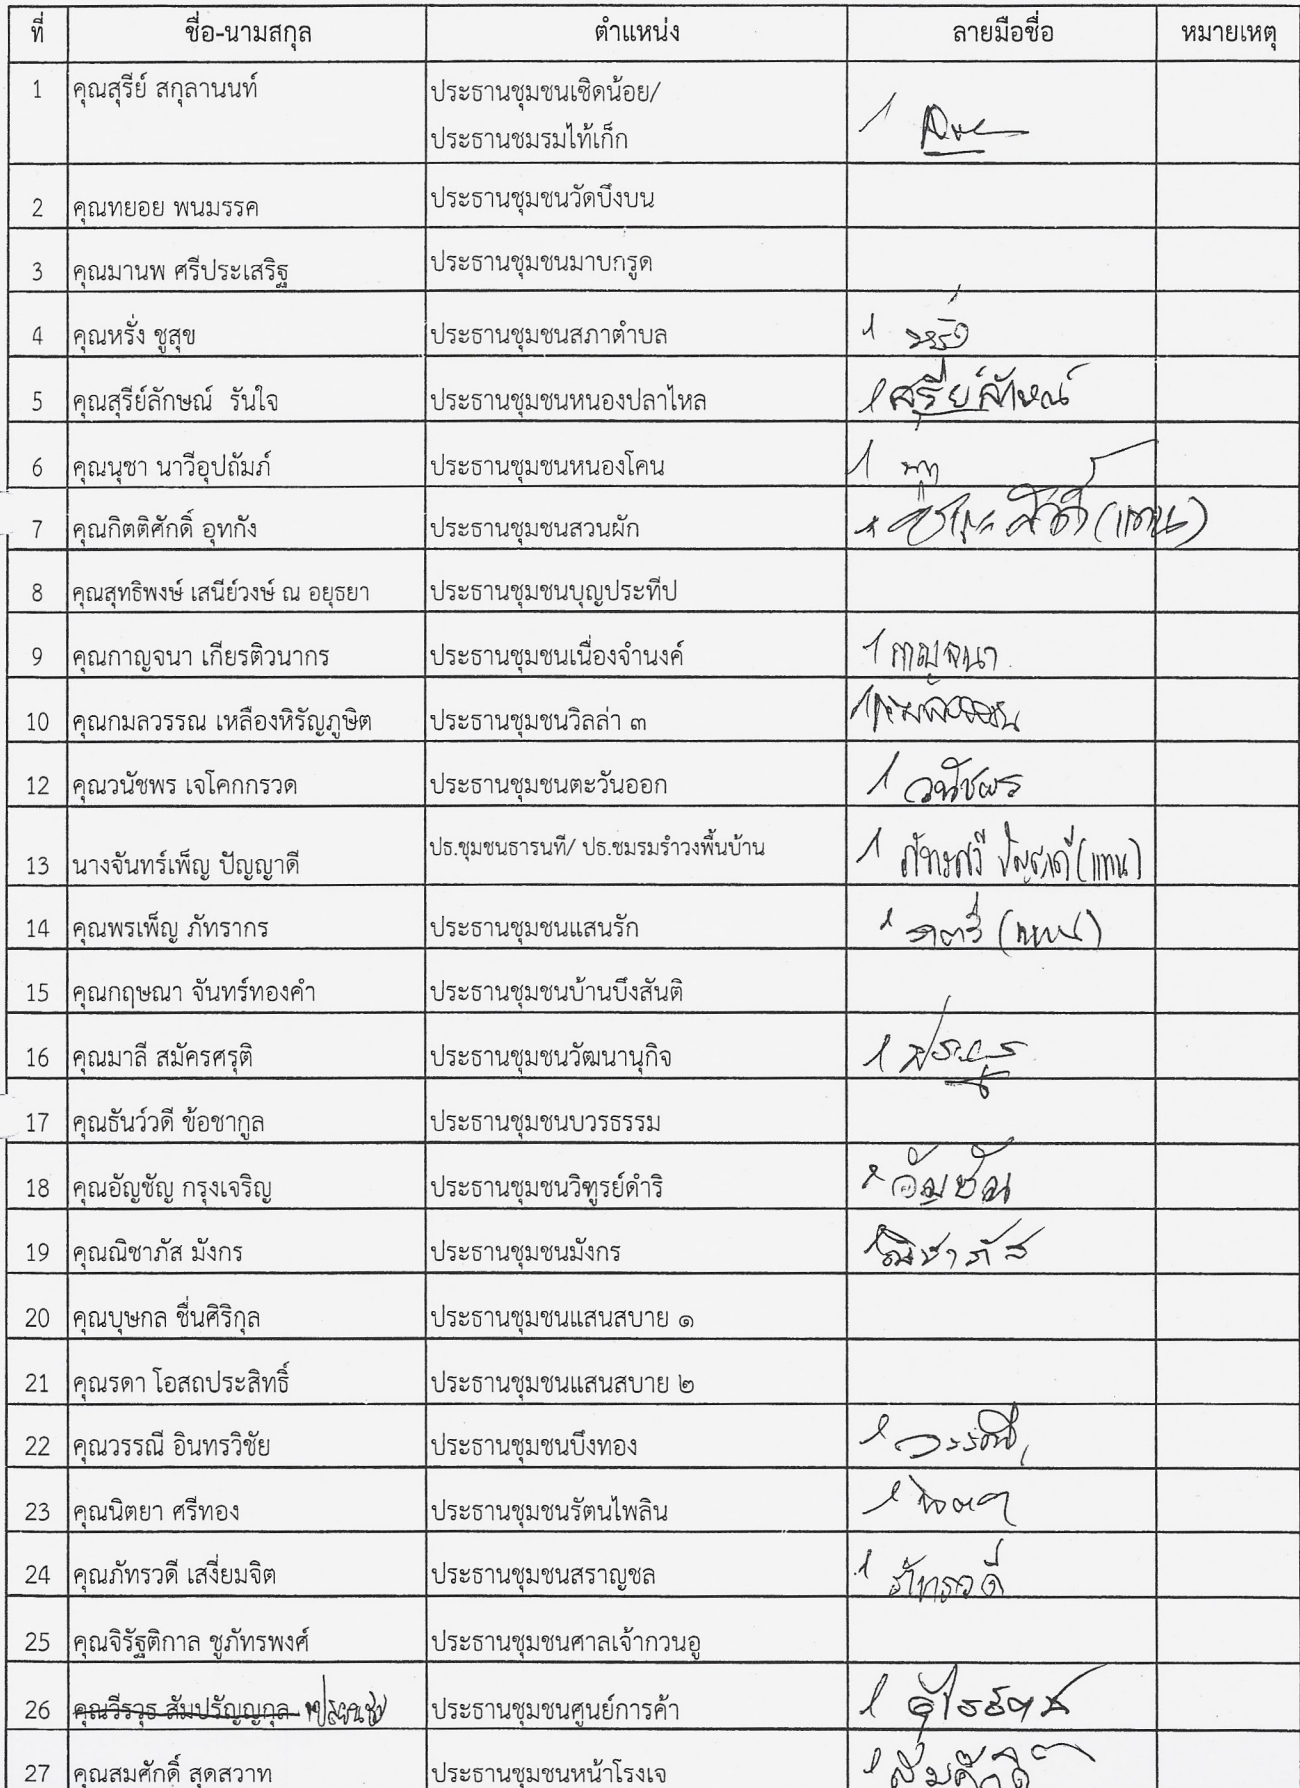 ที่ ชื่อ-นามสกุล ตำแหน่ง ลายมือชื่อ หมายเหตุ
1 คุณสุรีย์ สกุลานนท์ ประธานชุมชนเชิดน้อย/
ประธานชมรมไท้เก็ก
2 คุณทยอย พนมรรค ประธานชุมชนวัดบึงบน
3 คุณมานพ ศรีประเสริฐ ประธานชุมชนมาบกรูด
4 คุณหรั่ง ชูสุข ประธานชุมชนสภาตำบล 1 หรั่ง
5 คุณสุรีย์ลักษณ์ รันใจ ประธานชุมชนหนองปลาไหล 1 สุรีย์ลักษณ์
6 คุณนุชา นาวีอุปถัมภ์ ประธานชุมชนหนองโคน 1
7 คุณกิตติศักดิ์ อุทกัง ประธานชุมชนสวนผัก (แทน)
8 คุณสุทธิพงษ์ เสนีย์วงษ์ ณ อยุธยา ประธานชุมชนบุญประทีป
9 คุณกาญจนา เกียรติวนากร ประธานชุมชนเนื่องจำนงค์ 1 กาญจนา
10 คุณกมลวรรณ เหลืองหิรัญภูษิต ประธานชุมชนวิลล่า ๓ 1 กมลวรรณ
12 คุณวนัชพร เจโคกกรวด ประธานชุมชนตะวันออก 1 วนัชพร
13 นางจันทร์เพ็ญ ปัญญาดี ปธ.ชุมชนธารนที/ ปธ.ชมรมรำวงพื้นบ้าน 1 (แทน)
14 คุณพรเพ็ญ ภัทรากร ประธานชุมชนแสนรัก (แทน)
15 คุณกฤษณา จันทร์ทองคำ ประธานชุมชนบ้านบึงสันติ
16 คุณมาลี สมัครศรุติ ประธานชุมชนวัฒนานุกิจ 1
17 คุณธันว์วดี ข้อชากูล ประธานชุมชนบวรธรรม
18 คุณอัญชัญ กรุงเจริญ ประธานชุมชนวิฑูรย์ดำริ อัญชัญ
19 คุณณิชาภัส มังกร ประธานชุมชนมังกร ณิชาภัส
20 คุณบุษกล ชื่นศิริกุล ประธานชุมชนแสนสบาย ๑
21 คุณรดา โอสถประสิทธิ์ ประธานชุมชนแสนสบาย ๒
22 คุณวรรณี อินทรวิชัย ประธานชุมชนบึงทอง 1 วรรณี
23 คุณนิตยา ศรีทอง ประธานชุมชนรัตนไพลิน 1 นิตยา
24 คุณภัทรวดี เสงี่ยมจิต ประธานชุมชนสราญชล 1 ภัทรวดี
25 คุณจิรัฐติกาล ชูภัทรพงศ์ ประธานชุมชนศาลเจ้ากวนอู
26 คุณวีรวุธ สัมปรัญญกุล ประธานชุมชนศูนย์การค้า 1
27 คุณสมศักดิ์ สุดสวาท ประธานชุมชนหน้าโรงเจ 1 สมศักดิ์